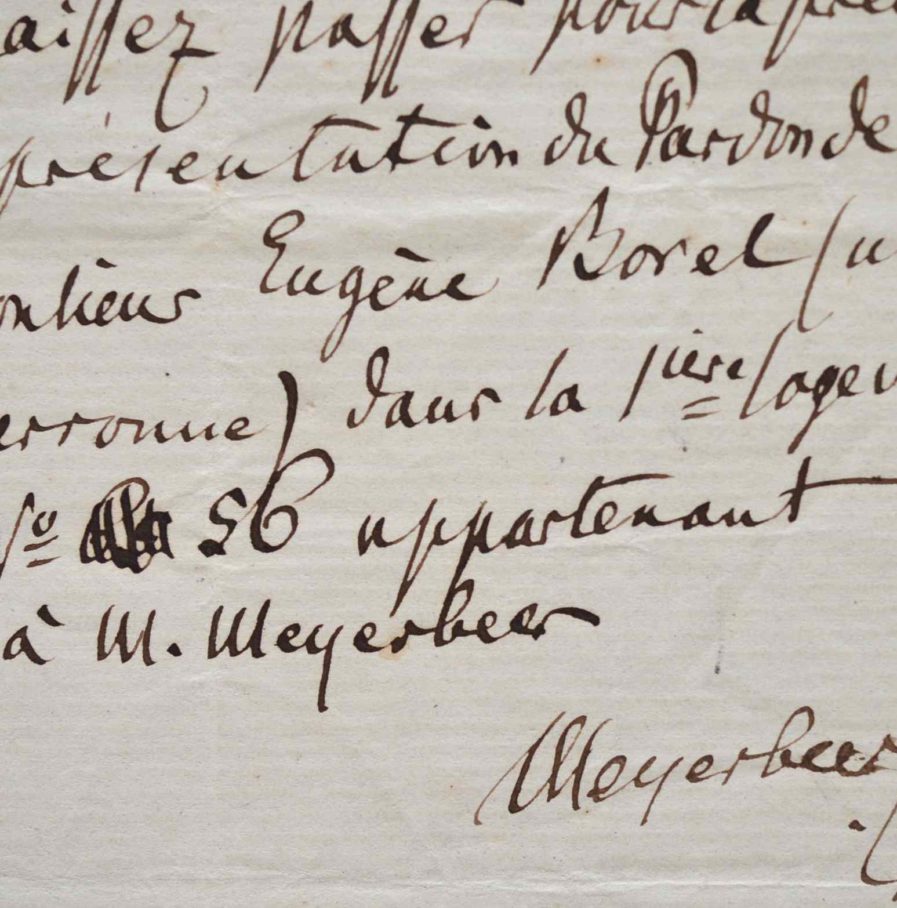 aissez passer pour la pre
présentation du Pardon de
onsieur Eugène Borel (u
ersonne) dans la 1ière loge
No 56 appartenant
à M. Meyerbeer
Meyerbeer